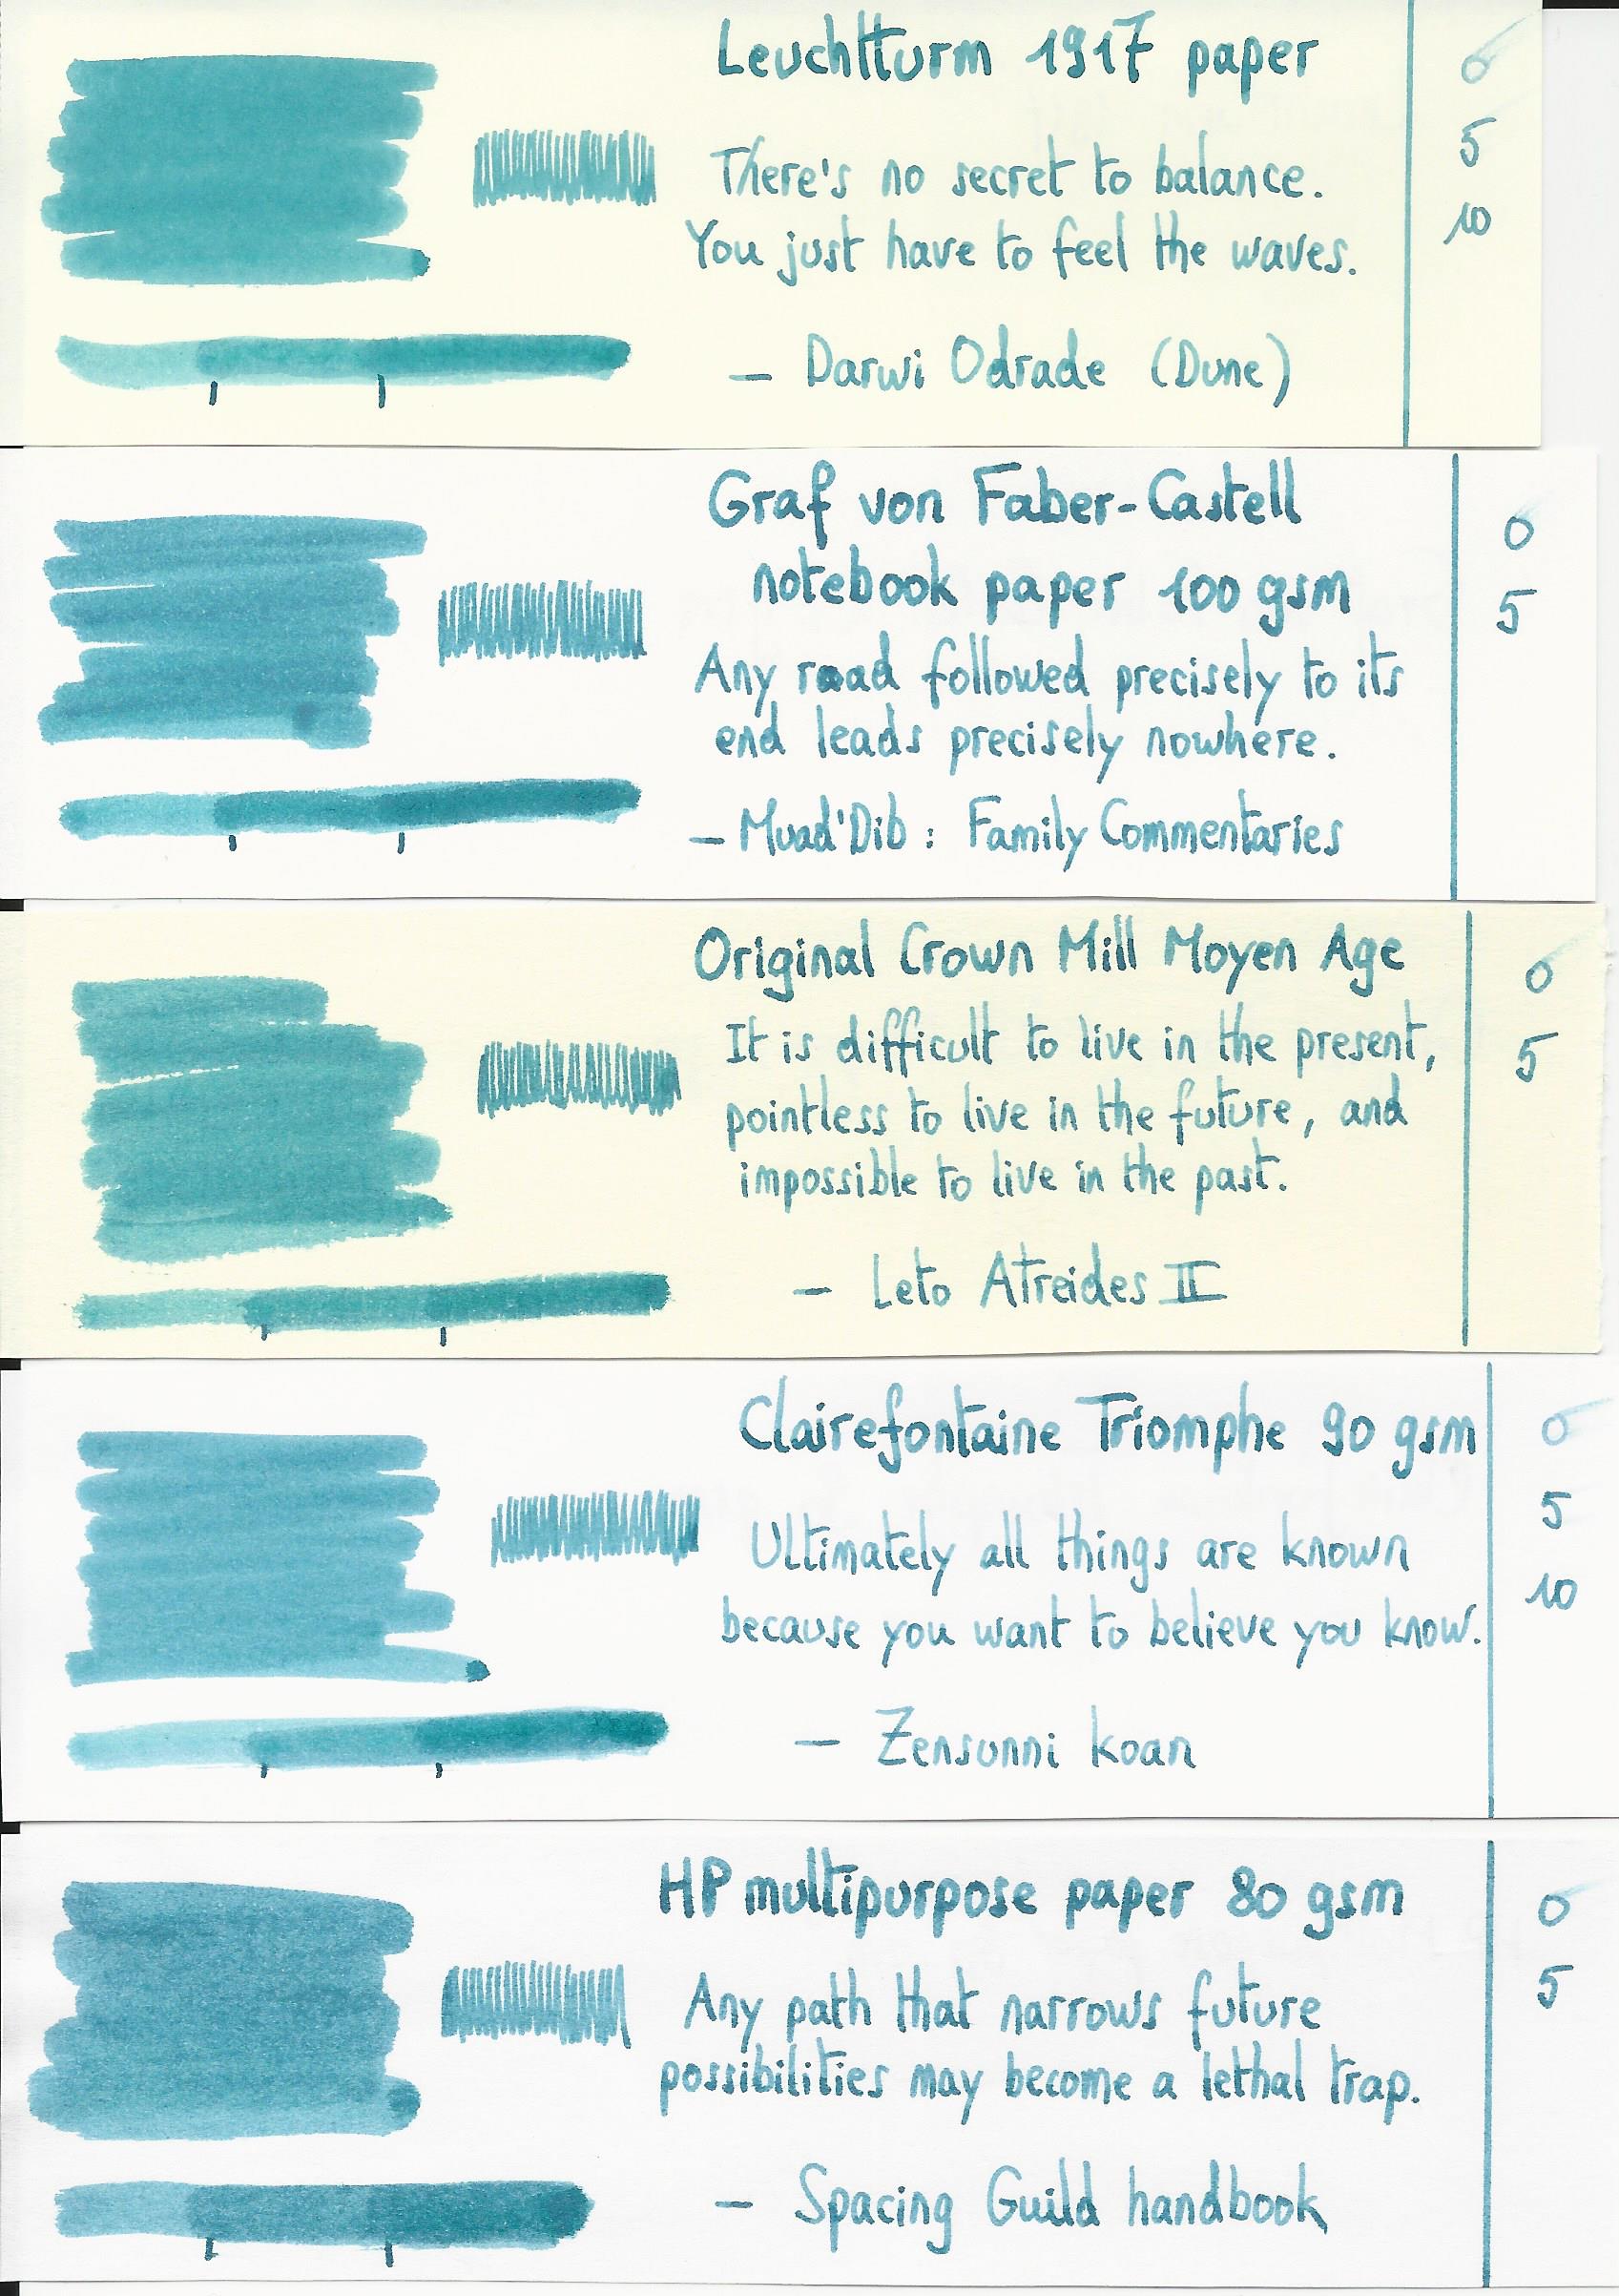 Leuchtturm 1917 paper
There's no secret to balance.
You just have to feel the waves.
— Darwi Odrade (Dune)
0
5
10
Graf von Faber-Castell
notebook paper 100 gsm
Any road followed precisely to its
end leads precisely nowhere.
— Muad'Dib : Family Commentaries
0
5
Original Crown Mill Moyen Age
It is difficult to live in the present,
pointless to live in the future, and
impossible to live in the past.
— Leto Atreides II
0
5
Clairefontaine Triomphe 90 gsm
Ultimately all things are known
because you want to believe you know.
— Zensunni koan
0
5
10
HP multipurpose paper 80 gsm
Any path that narrows future
possibilities may become a lethal trap.
— Spacing Guild handbook
0
5